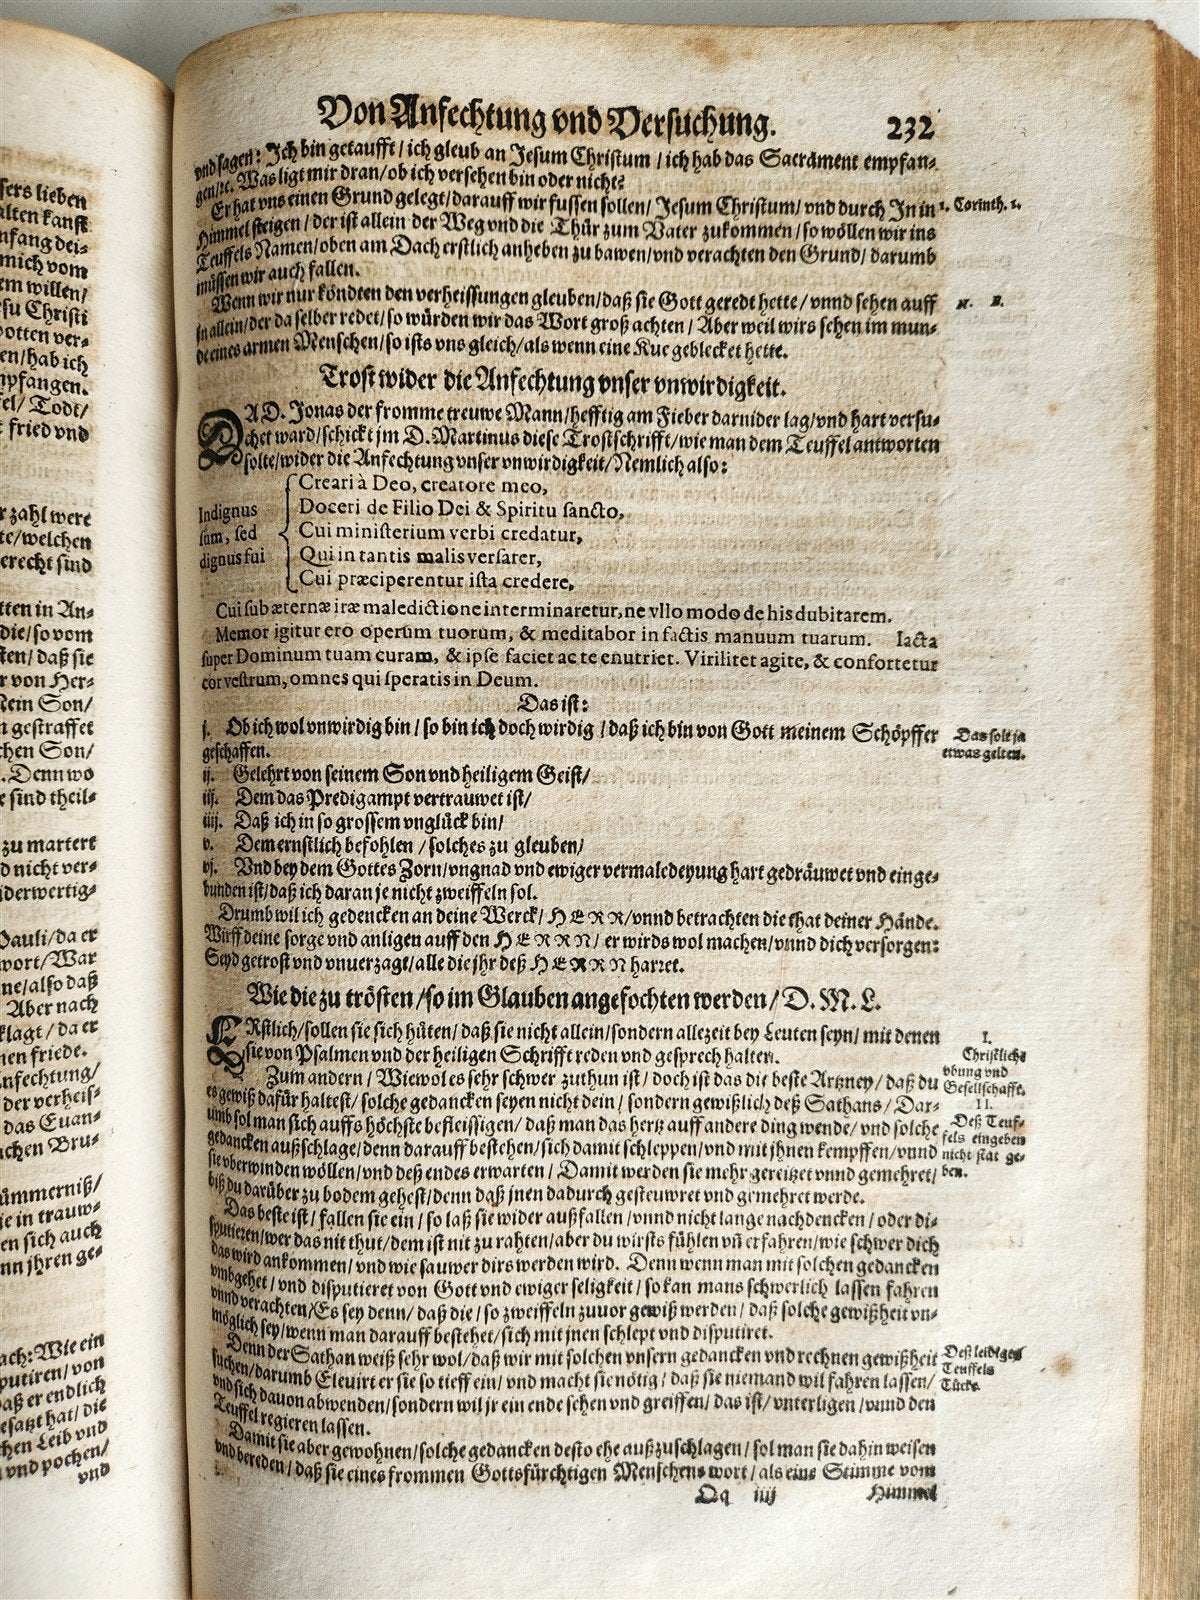 sers lieben
alten kanst
nfang dei-
mich vom
em willen/
su Christi
otten ver-
en/hab ich
npfangen.
fel/ Todt/
t fried vnd
r zahl were
te/welchen
erecht sind
tten in An-
die/so vom
sten/ daß sie
r von Her-
Nein Son/
n gestraffet
chen Son/
. Denn wo
e sind theil-
zu martert
d nicht ver-
iderwertig-
Pauli/da er
wort/War
ne/also daß
Aber nach
klagt/da er
nen friede.
nfechtung/
der verheis-
das Euan-
chen Bru-
ümmerniß/
ie in trauw-
en sich auch
nn jhren ge-
ach: Wie ein
putiren/von
aß er endlich
esatzt hat/die
chen Leib vnd
vnd pochen/
vnd
Von Anfechtung vnd Versuchung. 232
vnd sagen: Ich bin getaufft/ich gleub an Jesum Christum/ich hab das Sacrament empfan-
gen/ꝛc. Was ligt mir dran/ob ich versehen bin oder nicht?
Er hat vns einen Grund gelegt/darauff wir fussen sollen/Jesum Christum/vnd durch Jn in
1. Corinth. 1.
Himmel steigen/der ist allein der Weg vnd die Thür zum Vater zukommen/so wöllen wir ins
Teuffels Namen/oben am Dach erstlich anheben zu bawen/vnd verachten den Grund/darumb
müssen wir auch fallen.
Wenn wir nur köndten den verheissungen gleuben/daß sie Gott geredt hette/vnnd sehen auff
N. B.
jn allein/der da selber redet/so würden wir das Wort groß achten/Aber weil wirs sehen im mun-
de eines armen Menschen/so ists vns gleich/als wenn eine Kue geblecket hette.
Trost wider die Anfechtung vnser vnwirdigkeit.
DA D. Jonas der fromme treuwe Mann/hefftig am Fieber darnider lag/vnd hart versu-
chet ward/schickt jm D. Martinus diese Trostschrifft/wie man dem Teuffel antworten
solte/wider die Anfechtung vnser vnwirdigkeit/Nemlich also:
Indignus
sum, sed
dignus fui
Creari à Deo, creatore meo,
Doceri de Filio Dei & Spiritu sancto,
Cui ministerium verbi credatur,
Qui in tantis malis versarer,
Cui præciperentur ista credere,
Cui sub æternæ iræ maledictione interminaretur, ne vllo modo de his dubitarem.
Memor igitur ero operum tuorum, & meditabor in factis manuum tuarum. Iacta
super Dominum tuam curam, & ipse faciet ac te enutriet. Virilitet agite, & confortetur
cor vestrum, omnes qui speratis in Deum.
Das ist:
j. Ob ich wol vnwirdig bin/so bin ich doch wirdig/daß ich bin von Gott meinem Schöpffer
geschaffen.
Das solt ja
etwas gelten.
ij. Gelehrt von seinem Son vnd heiligem Geist/
iij. Dem das Predigampt vertrauwet ist/
iiij. Daß ich in so grossem vnglück bin/
v. Dem ernstlich befohlen/solches zu gleuben/
vj. Vnd bey dem Gottes Zorn/vngnad vnd ewiger vermaledeyung hart gedräuwet vnd einge-
bunden ist/daß ich daran je nicht zweiffeln sol.
Drumb wil ich gedencken an deine Werck/HERR/vnnd betrachten die that deiner Hände.
Wirff deine sorge vnd anligen auff den HERRN/er wirds wol machen/vnnd dich versorgen:
Seyd getrost vnd vnuerzagt/alle die jhr deß HERRN harret.
Wie die zu trösten/so im Glauben angefochten werden/D. M. L.
ERstlich/sollen sie sich hüten/daß sie nicht allein/sondern allezeit bey Leuten seyn/mit denen
sie von Psalmen vnd der heiligen Schrifft reden vnd gesprech halten.
I.
Christliche
vbung vnd
Gesellschafft.
Zum andern/Wiewol es sehr schwer zuthun ist/doch ist das die beste Artzney/daß du
es gewiß dafür haltest/solche gedancken seyen nicht dein/sondern gewißlich deß Sathans/Dar-
umb sol man sich auffs höchste befleissigen/daß man das hertz auff andere ding wende/vnd solche
gedancken außschlage/denn darauff bestehen/sich damit schleppen/vnd mit jhnen kempffen/vnnd
sie vberwinden wöllen/vnd deß endes erwarten/Damit werden sie mehr gereitzet vnnd gemehret/
biß du darüber zu bodem gehest/denn daß jnen dadurch gesteuwret vnd gemehret werde.
II.
Deß Teuf-
fels eingeben
nicht stat ge-
ben.
Das beste ist/fallen sie ein/so laß sie wider außfallen/vnnd nicht lange nachdencken/oder di-
sputieren/wer das nit thut/dem ist nit zu rahten/aber du wirsts fühlen vñ erfahren/wie schwer dich
das wird ankommen/vnd wie sauwer dirs werden wird. Denn wenn man mit solchen gedancken
vmbgehet/vnd disputieret von Gott vnd ewiger seligkeit/so kan mans schwerlich lassen fahren
vnnd verachten/Es sey denn/daß die/so zweiffeln zuuor gewiß werden/daß solche gewißheit vn-
möglich sey/wenn man darauff bestehet/sich mit jnen schlept vnd disputiret.
Denn der Sathan weiß sehr wol/daß wir mit solchen vnsern gedancken vnd rechnen gewißheit
suchen/darumb Eleuirt er sie so tieff ein/vnd macht sie nötig/daß sie niemand wil fahren lassen/
vnd sich dauon abwenden/sondern wil jr ein ende sehen vnd greiffen/das ist/vnterligen/vnnd den
Teuffel regieren lassen.
Deß leidigen
Teuffels
Tücke.
Damit sie aber gewohnen/solche gedancken desto ehe außzuschlagen/sol man sie dahin weisen
vnd bereden/daß sie eines frommen Gottsfürchtigen Menschens wort/als eine Stimme vom
Qq iiij Himmel